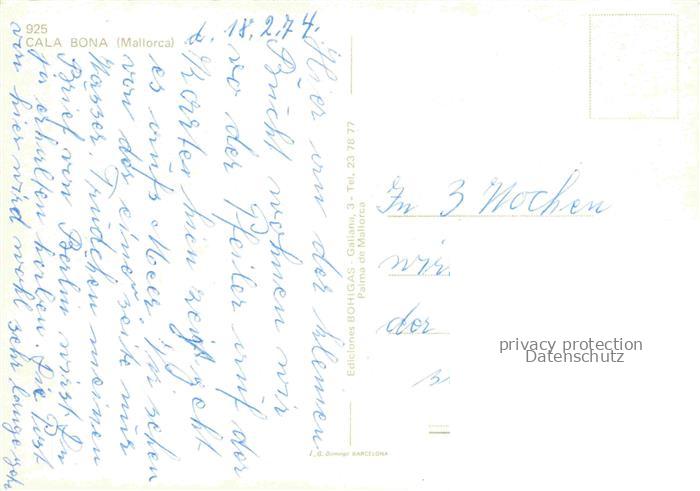 925
CALA BONA (Mallorca)
d. 18.2.74.
Hier an der kleinen
Bucht wohnen wir
wo der Pfeiler auf der
Karte hin zeigt geht
es aufs Meer, wir sehen
von der einen Seite nur
Wasser. Trudchen meinen
Brief von Berlin wirst Du
ja erhalten haben. Die Post
von hier wird wohl sehr lange geh
Ediciones BOHIGAS - Galiana, 3 - Tel. 23 78 77
Palma de Mallorca
I. G. Domingo BARCELONA
In 3 Wochen
wir
der
privacy protection
Datenschutz